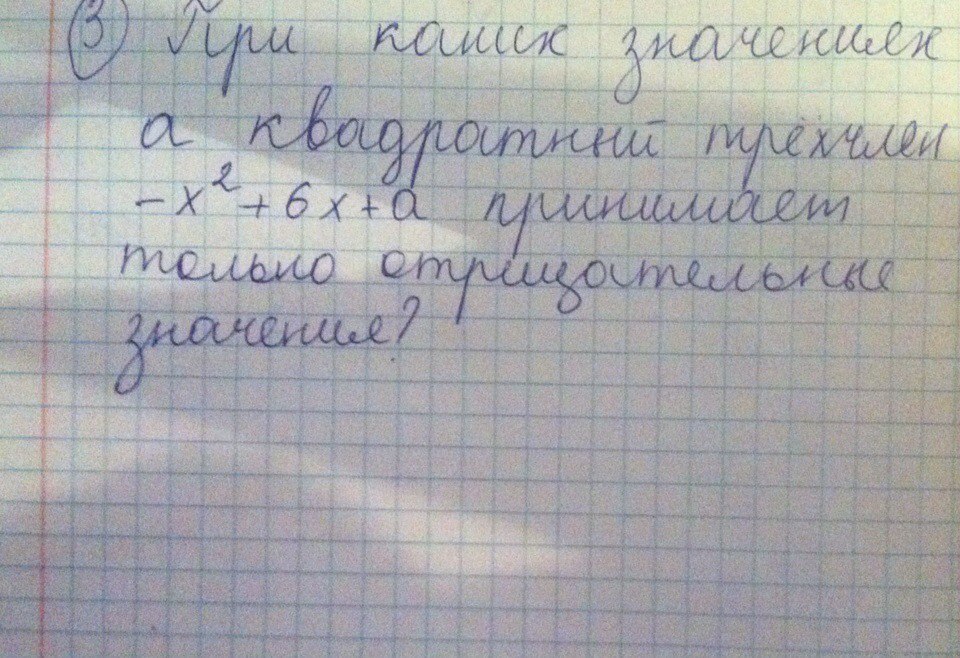 ③ При каких значениях
а квадратный трёхчлен
-x²+6x+а принимает
только отрицательные
значения?